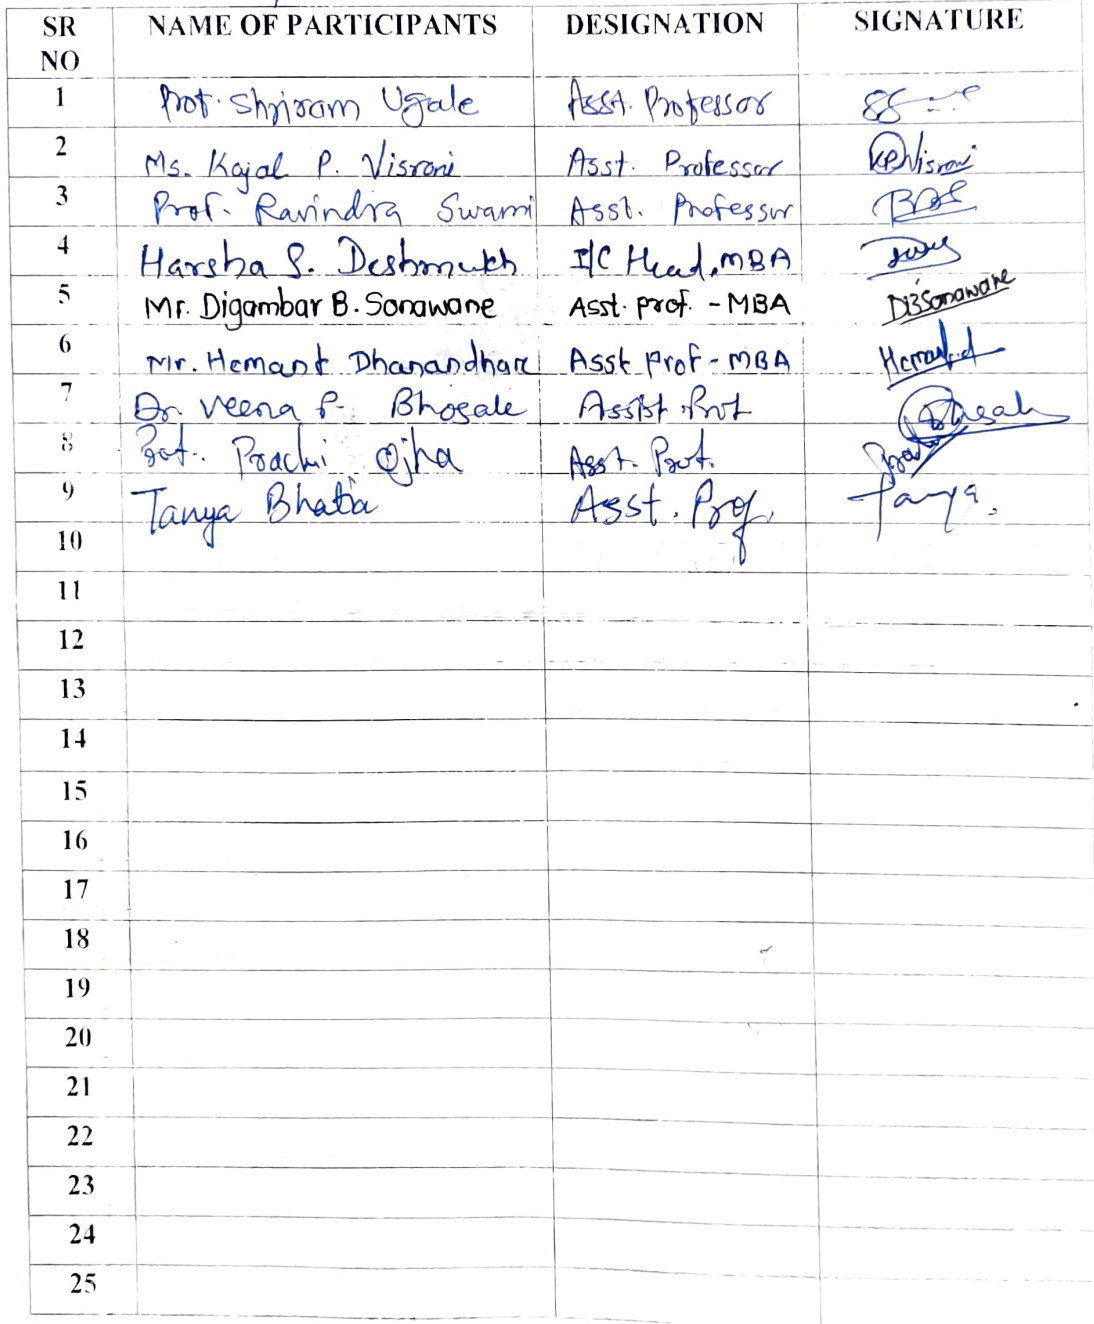 SR NO NAME OF PARTICIPANTS DESIGNATION SIGNATURE
1 Prof. Shriram Ugale Asst. Professor
2 Ms. Kajal P. Visrani Asst. Professor KPVisrani
3 Prof. Ravindra Swami Asst. Professor
4 Harsha S. Deshmukh I/C Head, MBA
5 Mr. Digambar B. Sonawane Asst. prof. - MBA DBSonawane
6 Mr. Hemant Dhanandhare Asst Prof - MBA Hemant.d
7 Dr. Veena P. Bhosale Assist. Prof
8 Prof. Prachi Ojha Asst. Prof.
9 Tanya Bhatia Asst. Prof. Tanya.
10
11
12
13
14
15
16
17
18
19
20
21
22
23
24
25